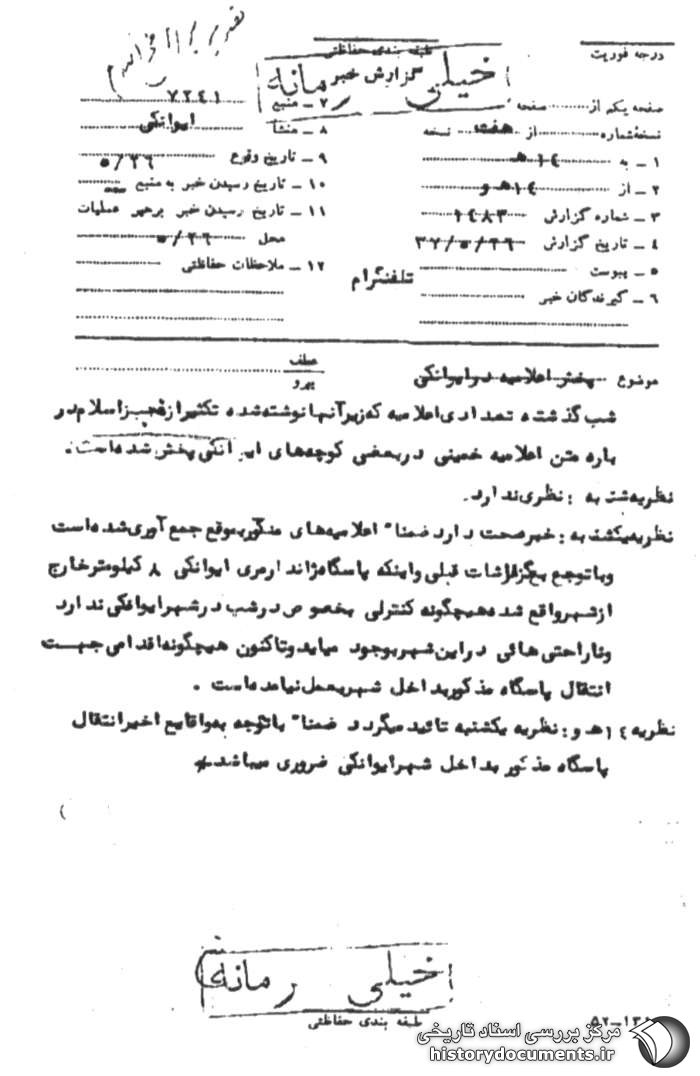 درجه فوریت
طبقه بندی حفاظتی
گزارش خبر
خیلی رمانه
صفحه یکم از صفحه
نسخه شماره از هفت نسخه
۱ ـ به ۱۴ هـ
۲ ـ از ۱۴ هـ و
۳ ـ شماره گزارش ۱۴۸۳
۴ ـ تاریخ گزارش ۳۷/۵/۲۶
۵ ـ پیوست
۶ ـ گیرندگان خبر
تلفنگرام
۷ ـ منبع ۷۲۴۱
۸ ـ منشأ ایوانکی
۹ ـ تاریخ وقوع ۵/۲۶
۱۰ ـ تاریخ رسیدن خبر به منبع
۱۱ ـ تاریخ رسیدن خبر برهبر عملیات
محل ۵/۲۶
۱۲ ـ ملاحظات حفاظتی
موضوع پخش اعلامیه در ایوانکی
عطف
پیرو
شب گذشته تعدادی اعلامیه که زیر آنها نوشته شده تکثیر از اسلام در
باره متن اعلامیه خمینی در بعضی کوچه‌های ایوانکی پخش شده است .
نظریه شنبه : نظری ندارد .
نظریه یکشنبه : خبر صحت دارد ضمنا" اعلامیه‌های مذکور بموقع جمع آوری شده است
و با توجه گزارشات قبلی و اینکه پاسگاه ژاندارمری ایوانکی ۸ کیلومتر خارج
از شهر واقع شده هیچگونه کنترلی بخصوص در شب در شهر ایوانکی ندارد
و ناراحتی هائی در این شهر بوجود میاید و تاکنون هیچگونه اقدامی جهت
انتقال پاسگاه مذکور بداخل شهر بعمل نیامده است .
نظریه ۱۴ هـ و : نظریه یکشنبه تائید میگردد ضمنا" با توجه به وقایع اخیر انتقال
پاسگاه مذکور بداخل شهر ایوانکی ضروری میباشد
خیلی رمانه
طبقه بندی حفاظتی
مرکز بررسی اسناد تاریخی
historydocuments.ir